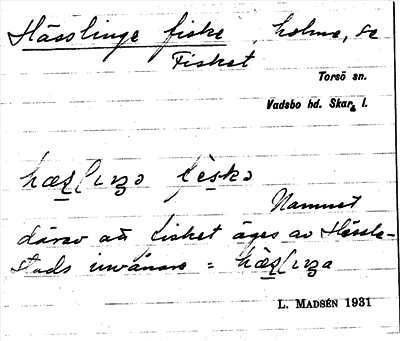 Hässlinge fiske, holme, se
Fisket
Torsö sn.
Vadsbo hd. Skar. l.
fiske
Namnet
därav att fisket äges av Hässle-
stads invånare =
L. MADSÉN 1931